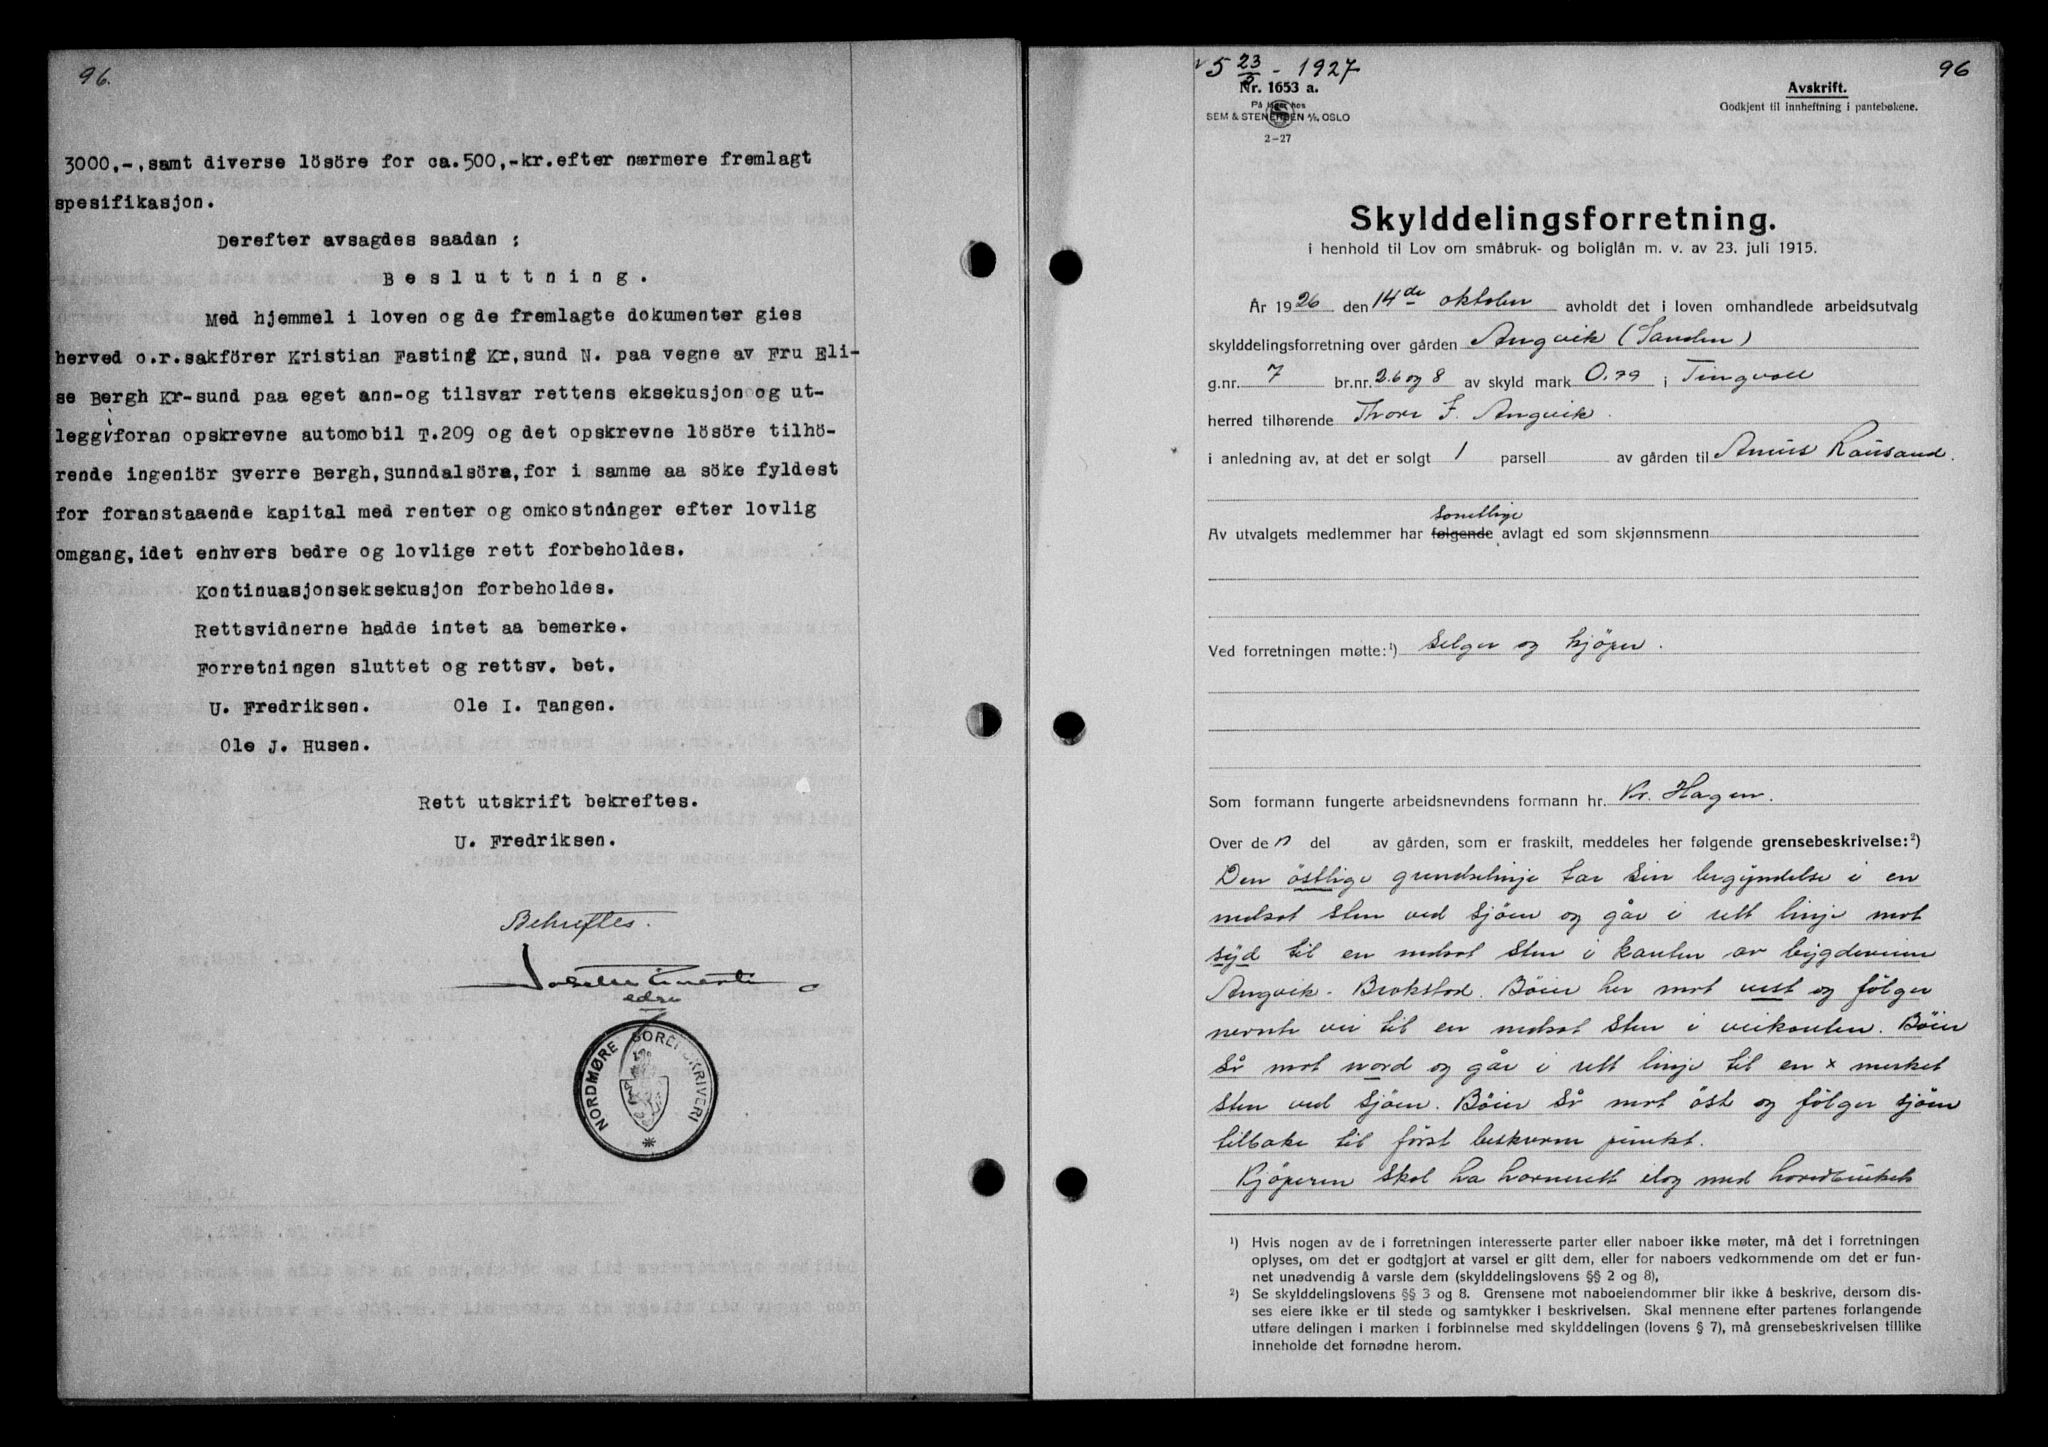 96.
3000,-, samt diverse lösöre for ca.500,-kr.efter nærmere fremlagt
spesifikasjon.
Derefter avsagdes saadan :
Besluttning.
Med hjemmel i loven og de fremlagte dokumenter gies
herved o.r.sakförer Kristian Fasting Kr,sund N. paa vegne av Fru Eli-
se Bergh Kr-sund paa eget ann-og tilsvar rettens eksekusjon og ut-
legg i foran opskrevne automobil T.209 og det opskrevne lösöre tilhö-
rende ingeniör Sverre Bergh, Sunndalsöra, for i samme aa söke fyldest
for foranstaaende kapital med renter og omkostninger efter lovlig
omgang, idet enhvers bedre og lovlige rett forbeholdes.
Kontinuasjonseksekusjon forbeholdes.
Rettsvidnerne hadde intet aa bemerke.
Forretningen sluttet og rettsv. bet.
U. Fredriksen. Ole I. Tangen.
Ole J. Husen.
Rett utskrift bekreftes.
U. Fredriksen.
Bekreftes.
edsv
NORDMØRE SORENSKRIVERI
5 23/3 - 1927
96
Nr. 1653 a.
På lager hos
SEM & STENERSEN A/S, OSLO
2-27
Avskrift.
Godkjent til innheftning i pantebøkene.
Skylddelingsforretning.
i henhold til Lov om småbruk- og boliglån m. v. av 23. juli 1915.
År 1926 den 14de oktober avholdt det i loven omhandlede arbeidsutvalg
skylddelingsforretning over gården Angvik (Sanden)
g.nr. 7 br.nr. 26 og 8 av skyld mark 0.79 i Tingvoll
herred tilhørende Thore F. Angvik.
i anledning av, at det er solgt 1 parsell av gården til Amus Rausand.
samtlige
Av utvalgets medlemmer har følgende avlagt ed som skjønnsmenn
Ved forretningen møtte:¹) selger og kjöper.
Som formann fungerte arbeidsnevndens formann hr. Kr. Hagen.
Over de n del av gården, som er fraskilt, meddeles her følgende grensebeskrivelse:²)
Den östlige grendselinje tar sin begyndelse i en
nedsat sten ved sjöen og går i rett linje mot
syd til en nedsat sten i kanten av bygdeveien
Angvik - Brokstad. Böier her mot vest og fölger
nevnte vei til en nedsat sten i veikanten. Böier
så mot nord og går i rett linje til en x merket
sten ved sjöen. Böier så mot öst og fölger sjöen
tilbake til först beskrevne punkt.
Kjöperen skal ha havnerett ilag med hovedbruket
¹) Hvis nogen av de i forretningen interesserte parter eller naboer ikke møter, må det i forretningen
oplyses, om det er godtgjort at varsel er gitt dem, eller for naboers vedkommende om det er fun-
net unødvendig å varsle dem (skylddelingslovens §§ 2 og 8),
²) Se skylddelingslovens §§ 3 og 8. Grensene mot naboeiendommer blir ikke å beskrive, dersom dis-
ses eiere ikke er til stede og samtykker i beskrivelsen. Skal mennene efter partenes forlangende
utføre delingen i marken i forbinnelse med skylddelingen (lovens § 7), må grensebeskrivelsen tillike
inneholde det fornødne herom.